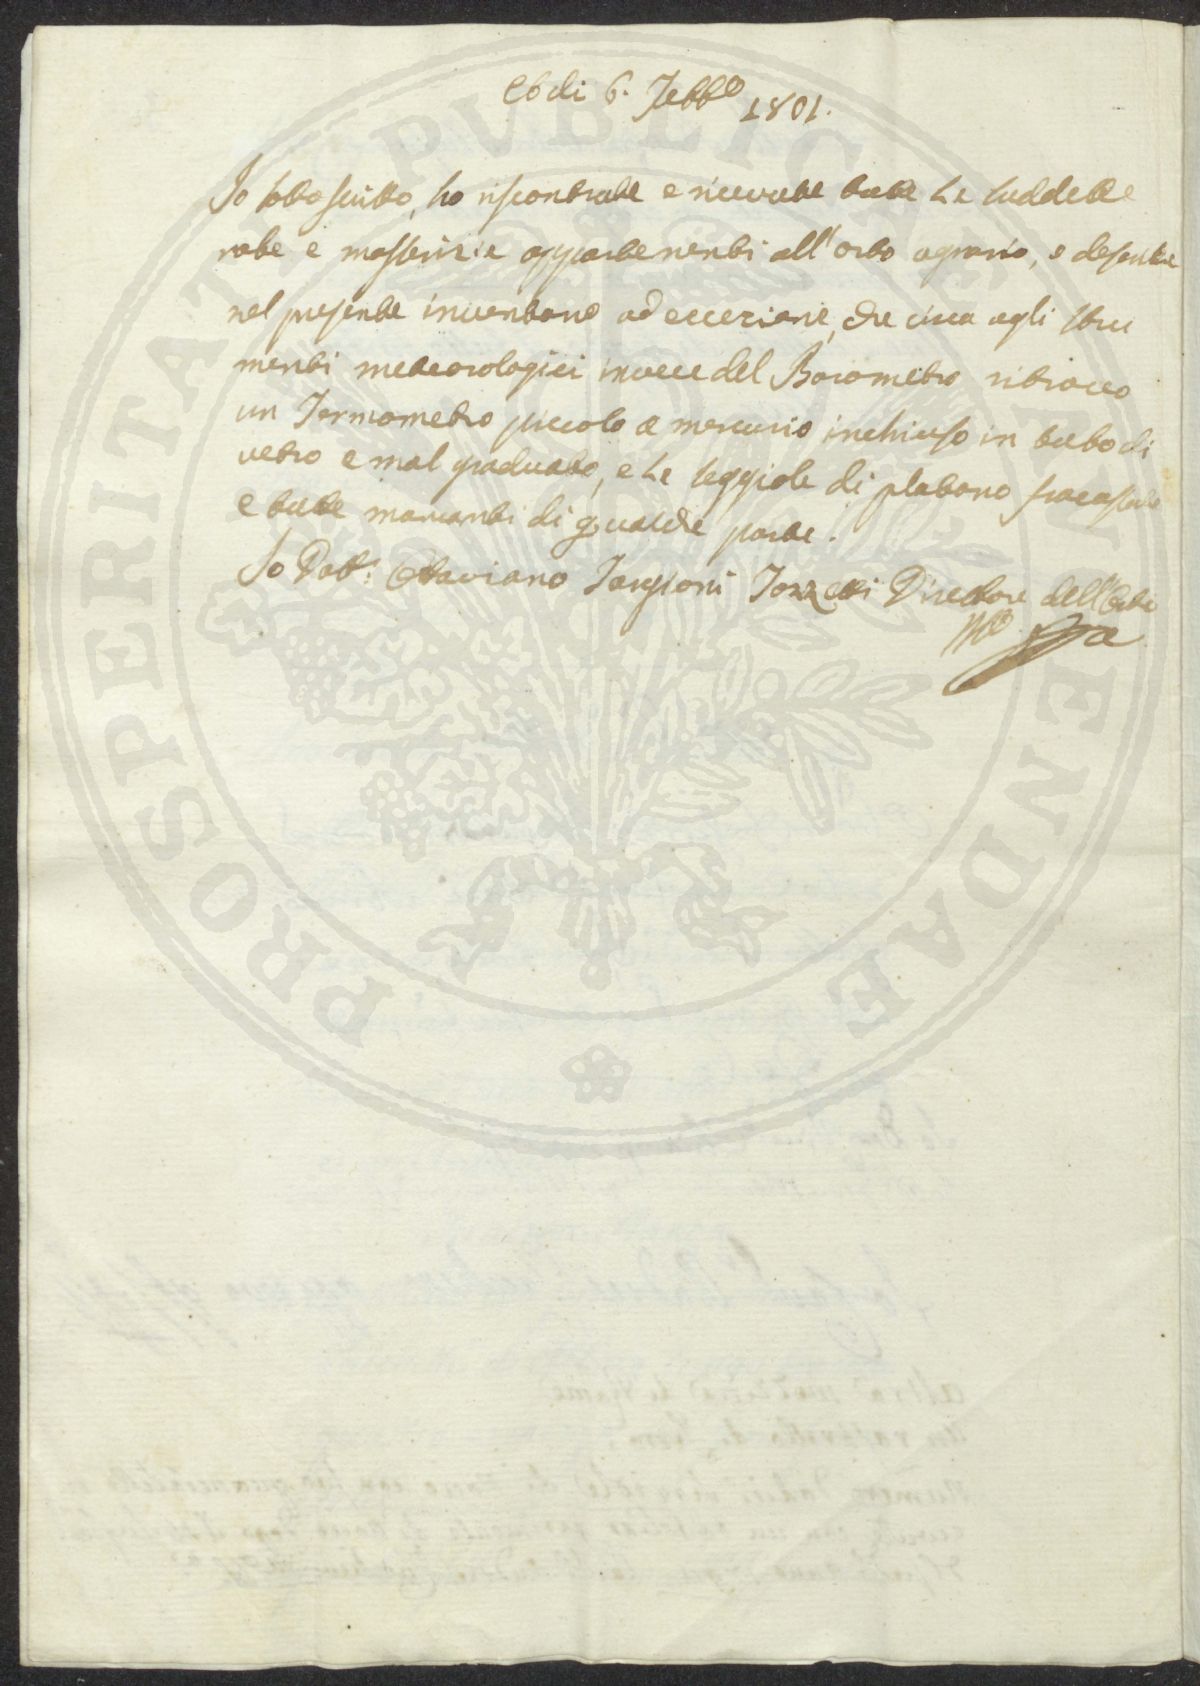 Adi 6. Febb.o 1801.
Io sottoscritto, ho riscontrate e ricevute tutte le suddette
robe e masserizie appartenenti all'orto agrario, e descritte
nel presente inventario ad eccezione, che circa agli stru
menti meteorologici invece del Barometro ritrovo
un Termometro piccolo a mercurio inchiuso in tubo di
vetro e mal graduato, e le seggiole di platano fracassate
e tutte mancanti di qualche parte.
Io Dott. Ottaviano Targioni Tozzetti Direttore dell'Orto
PROSPERITATI PVBLICAE AVGENDAE